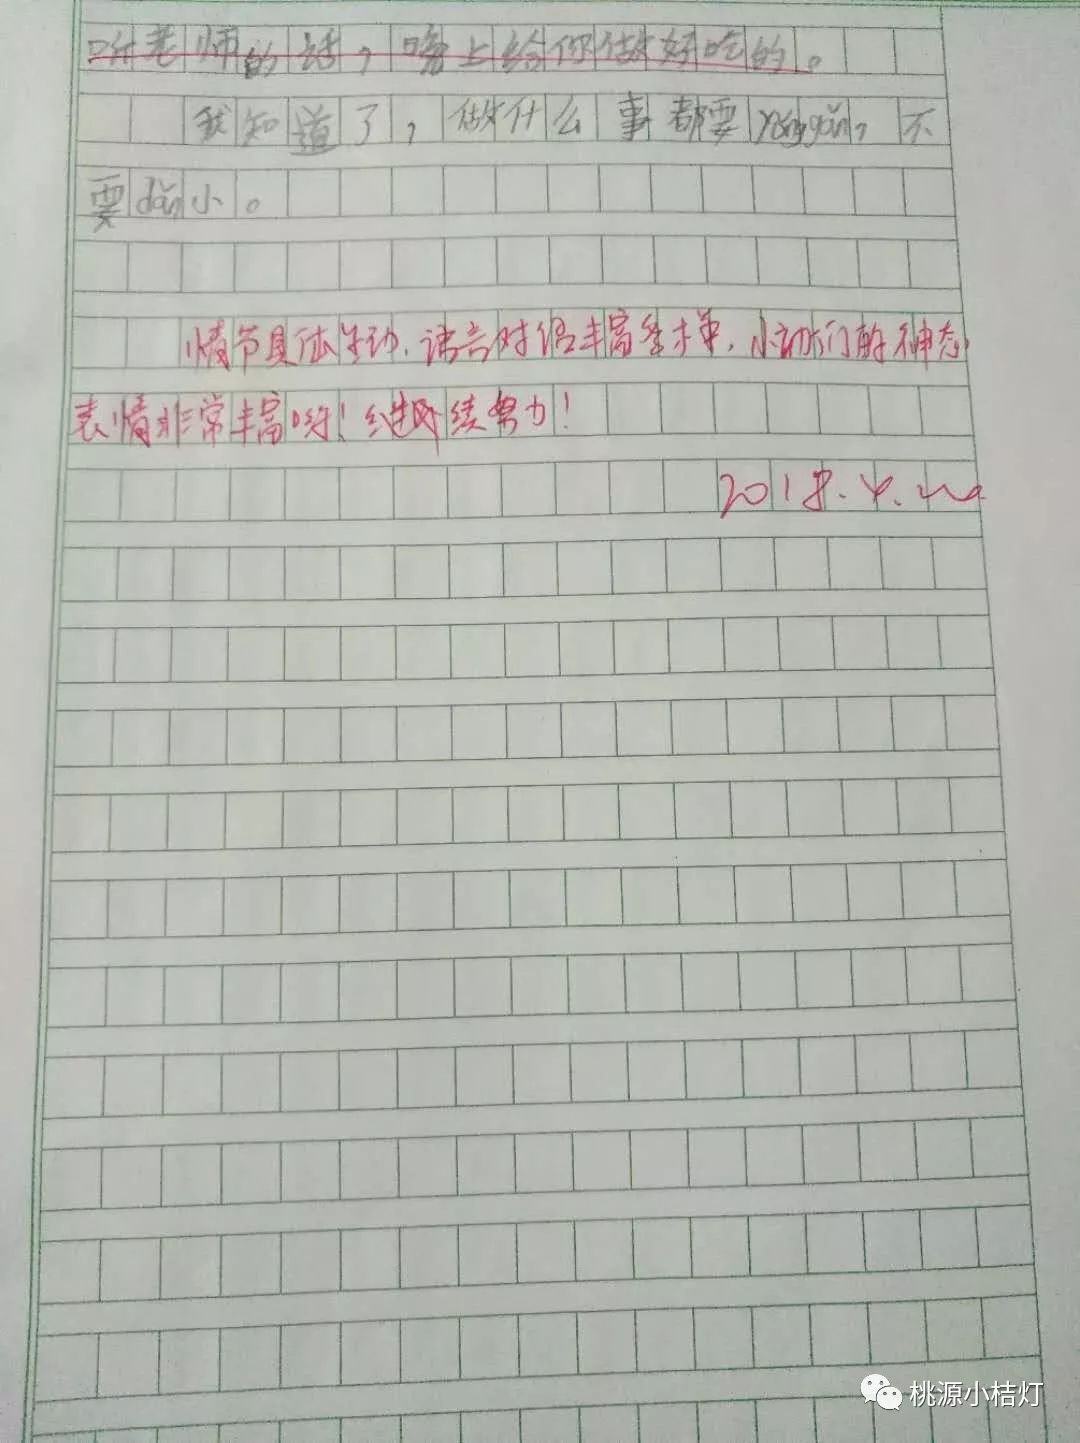 听老师的话，晚上给你做好吃的。
我知道了，做什么事都要yǒnggǎn，不
要dǎn小。
情节具体生动，语言对话丰富多样，小动物们的神态
表情非常丰富哟！继续努力！
2018.4.
桃源小桔灯